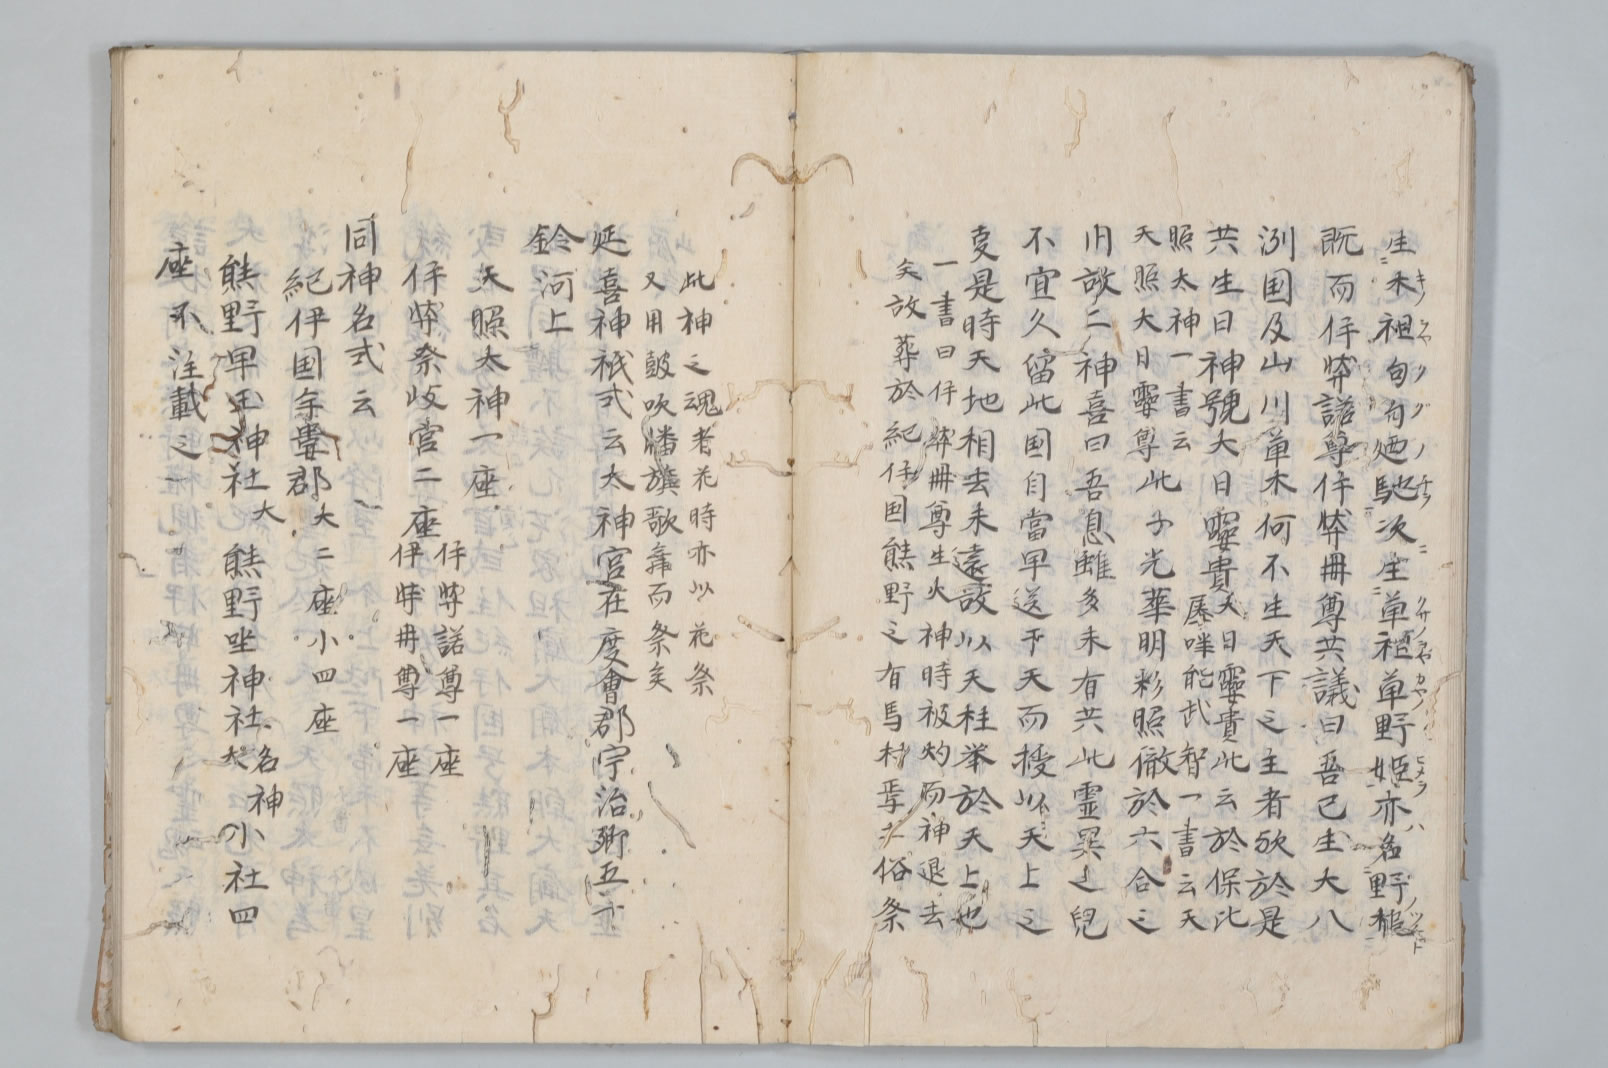 生木祖句句廼馳次生草祖草野姫亦名野槌
既而伊弉諾尊伊弉冊尊共議曰吾已生大八
洲国及山川草木何不生天下之主者欤於是
共生日神號大日孁貴大日孁貴此云於保比
屡咩能武智一書云天
照太神一書云
天照大日孁尊此子光華明彩照徹於六合之
内故二神喜曰吾息雖多未有共此霊異之兒
不宜久留此国自當早送于天而授以天上之
支是時天地相去未遠故以天柱挙於天上也
一書曰伊弉冊尊生火神時被灼而神退去
矣故葬於紀伊国熊野之有馬村焉土俗祭
此神之魂者花時亦以花祭
又用皷吹幡旗歌舞而祭矣
延喜神祇式云太神宮在度會郡宇治郷五十
鈴河上
天照太神一座
伊弉祭岐宮二座
伊弉諾尊一座
伊弉冉尊一座
同神名式云
紀伊国牟婁郡大二座小四座
熊野早玉神社大 熊野坐神社名神大 小社四
座不注載之